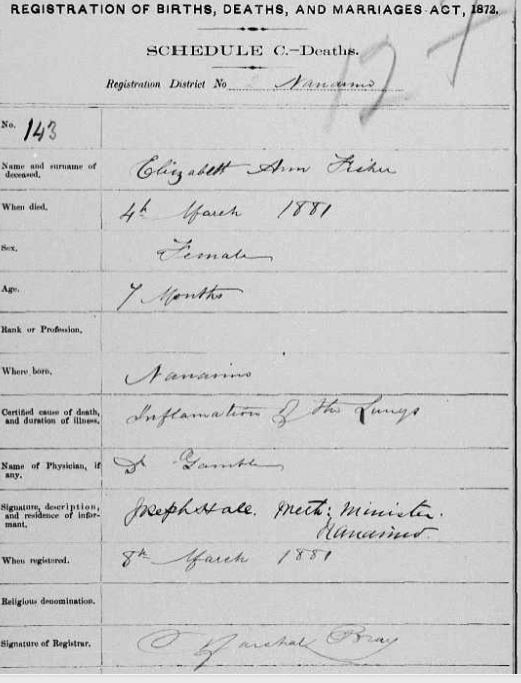 REGISTRATION OF BIRTHS, DEATHS, AND MARRIAGES ACT, 1872.
SCHEDULE C.—Deaths.
Registration District No Nanaimo
No. 143
Name and surname of deceased. Elizabeth Ann Fisher
When died. 4th March 1881
Sex. Female
Age. 7 Months
Rank or Profession.
Where born. Nanaimo
Certified cause of death, and duration of illness. Inflamation of the Lungs
Name of Physician, if any. Dr Gamble
Signature, description, and residence of informant. Joseph Hall. Meth: Minister.
Nanaimo
When registered. 8th March 1881
Religious denomination.
Signature of Registrar. Marshal Bray